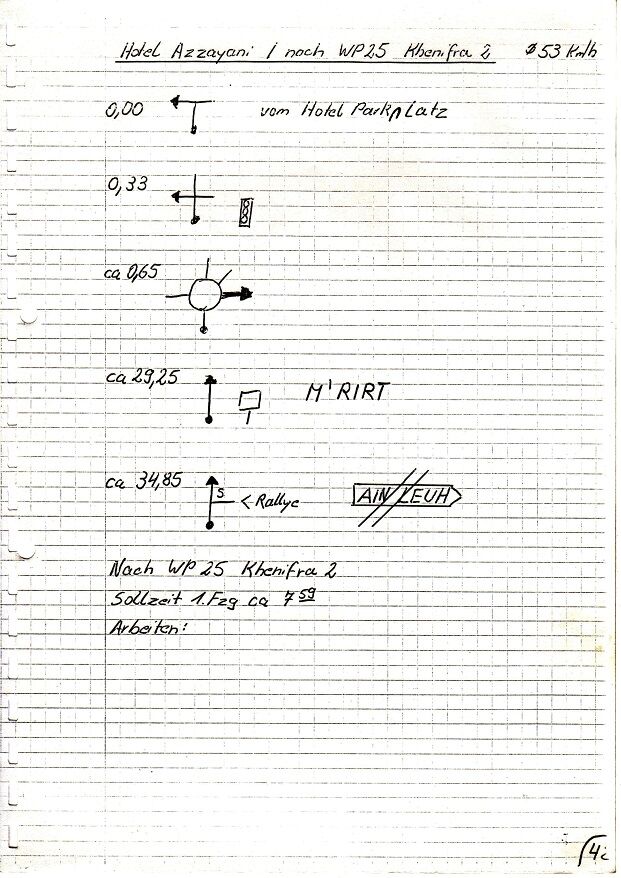 Hotel Azzayani / nach WP25 Khenifra 2 ø 53 Km/h
0,00 vom Hotel Parkplatz
0,33
ca 0,65
ca 29,25 M'RIRT
ca 34,85 S < Rallye AIN LEUH
Nach WP 25 Khenifra 2
Sollzeit 1. Fzg ca 7 59
Arbeiten: